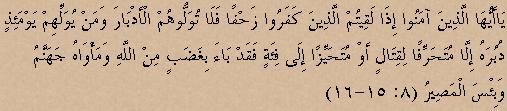 يَاأَيُّهَا الَّذِينَ آمَنُوا إِذَا لَقِيتُمُ الَّذِينَ كَفَرُوا زَحْفًا فَلَا تُوَلُّوهُمُ الْأَدْبَارَ وَمَنْ يُوَلِّهِمْ يَوْمَئِذٍ
دُبُرَهُ إِلَّا مُتَحَرِّفًا لِقِتَالٍ أَوْ مُتَحَيِّزًا إِلَى فِئَةٍ فَقَدْ بَاءَ بِغَضَبٍ مِنْ اللَّهِ وَمَأْوَاهُ جَهَنَّمُ
وَبِئْسَ الْمَصِيرُ (٨: ١٥-١٦)